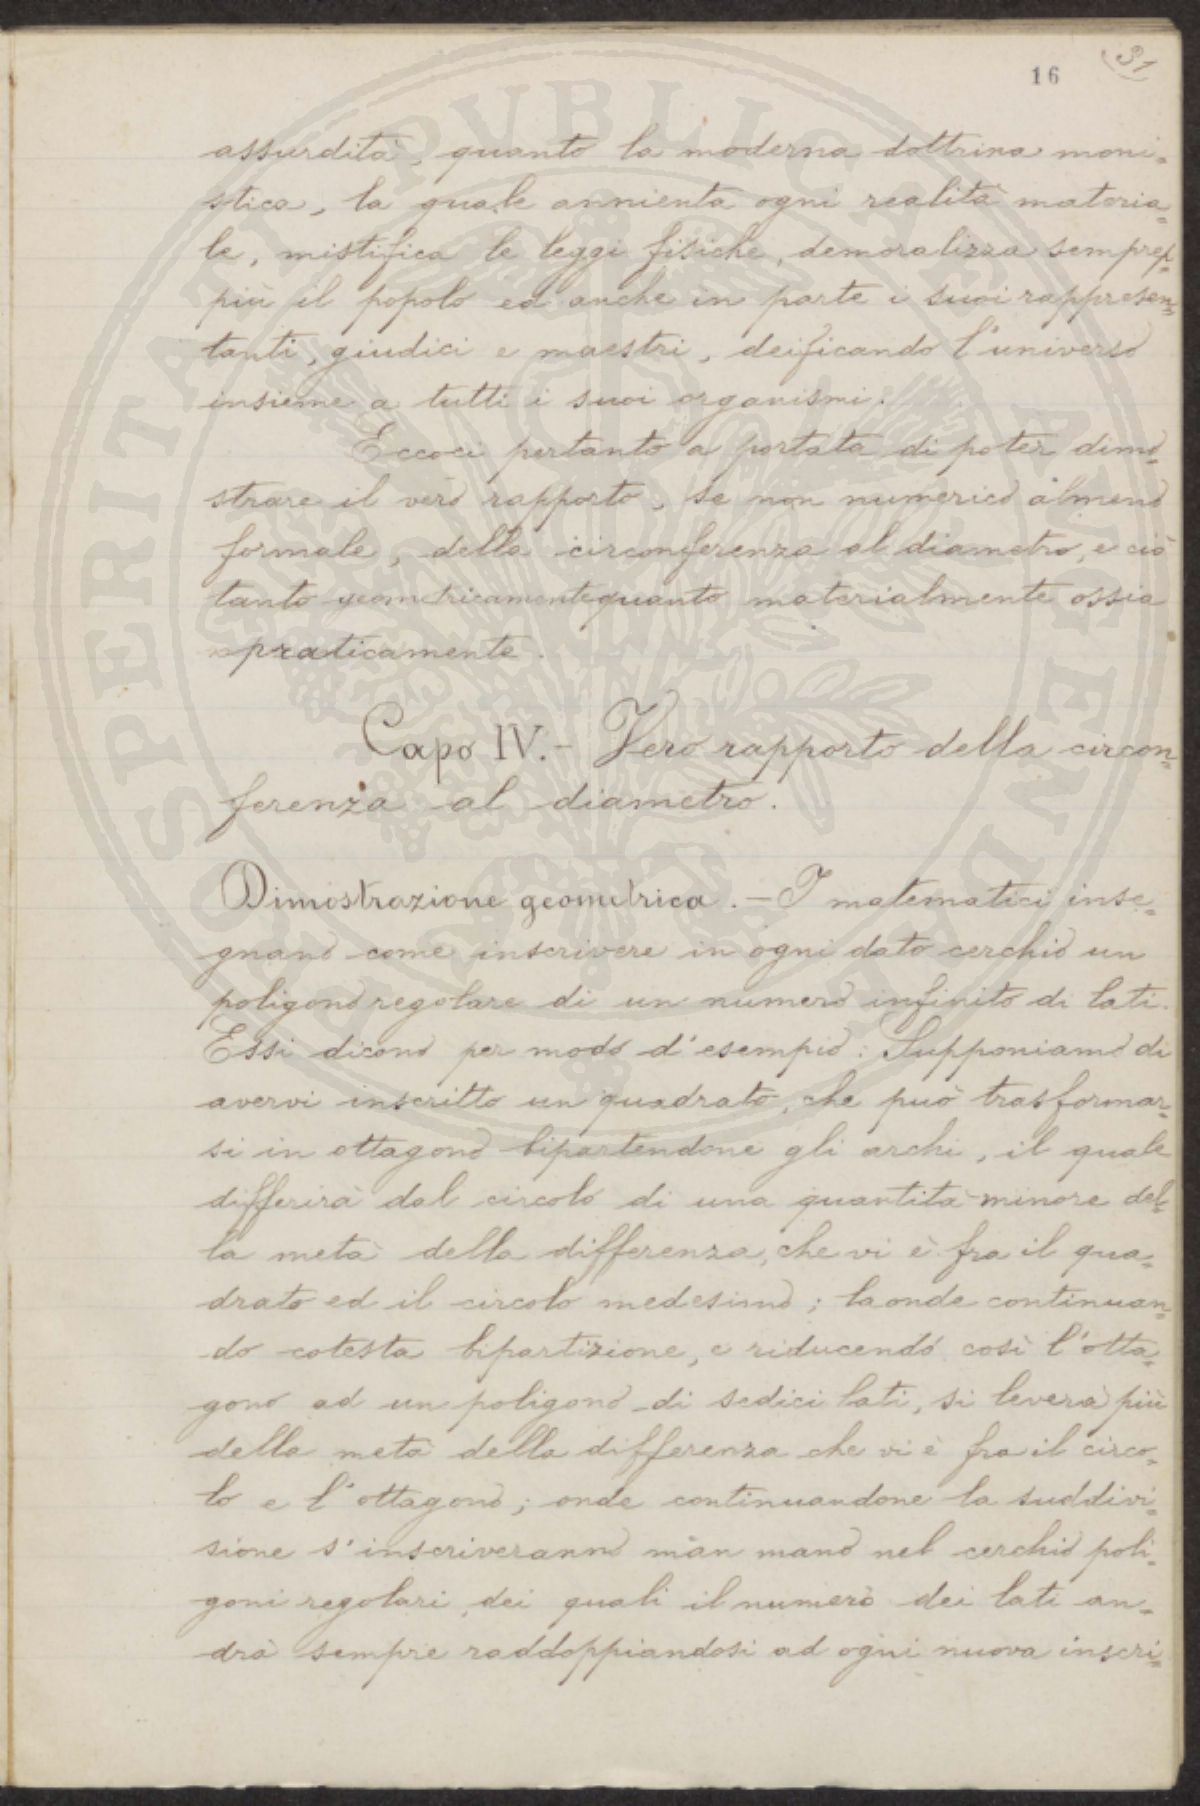 16
31
assurdità, quanto la moderna dottrina moni=
stica, la quale annienta ogni realità materia=
le, mistifica le leggi fisiche, demoralizza semprep=
più il popolo ed anche in parte i suoi rappresen=
tanti, giudici e maestri, deificando l'universo
insieme a tutti i suoi organismi.
Eccoci pertanto a portata di poter dimo=
strare il vero rapporto, se non numerico almeno
formale, della circonferenza al diametro, e ciò
tanto geometricamente quanto materialmente ossia
praticamente.
Capo IV. - Vero rapporto della circon=
ferenza al diametro.
Dimostrazione geometrica. - I matematici inse=
gnano come inscrivere in ogni dato cerchio un
poligono regolare di un numero infinito di lati.
Essi dicono per modo d'esempio: Supponiamo di
avervi inscritto un quadrato, che può trasformar=
si in ottagono bipartendone gli archi, il quale
differirà dal circolo di una quantità minore del=
la metà della differenza, che vi è fra il qua=
drato ed il circolo medesimo; laonde continuan=
do cotesta bipartizione, e riducendo così l'otta=
gono ad un poligono di sedici lati, si leverà più
della metà della differenza che vi è fra il circo=
lo e l'ottagono; onde continuandone la suddivi=
sione s'inscriveranno man mano nel cerchio poli=
goni regolari, dei quali il numero dei lati an=
drà sempre raddoppiandosi ad ogni nuova inscri=
PROSPERITATI PUBLICAE AUGENDAE